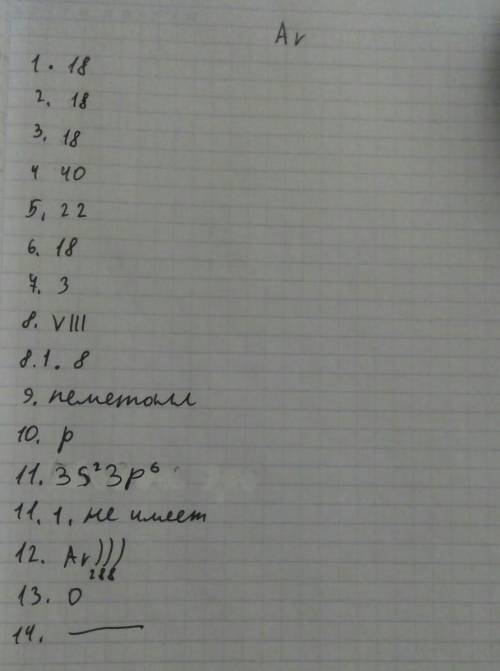 Ar
1. 18
2. 18
3. 18
4 40
5, 22
6. 18
7. 3
8. VIII
8.1. 8
9. неметалл
10. p
11. 3S²3p⁶
11.1. не имеет
12. Ar)))
288
13. 0
14. —